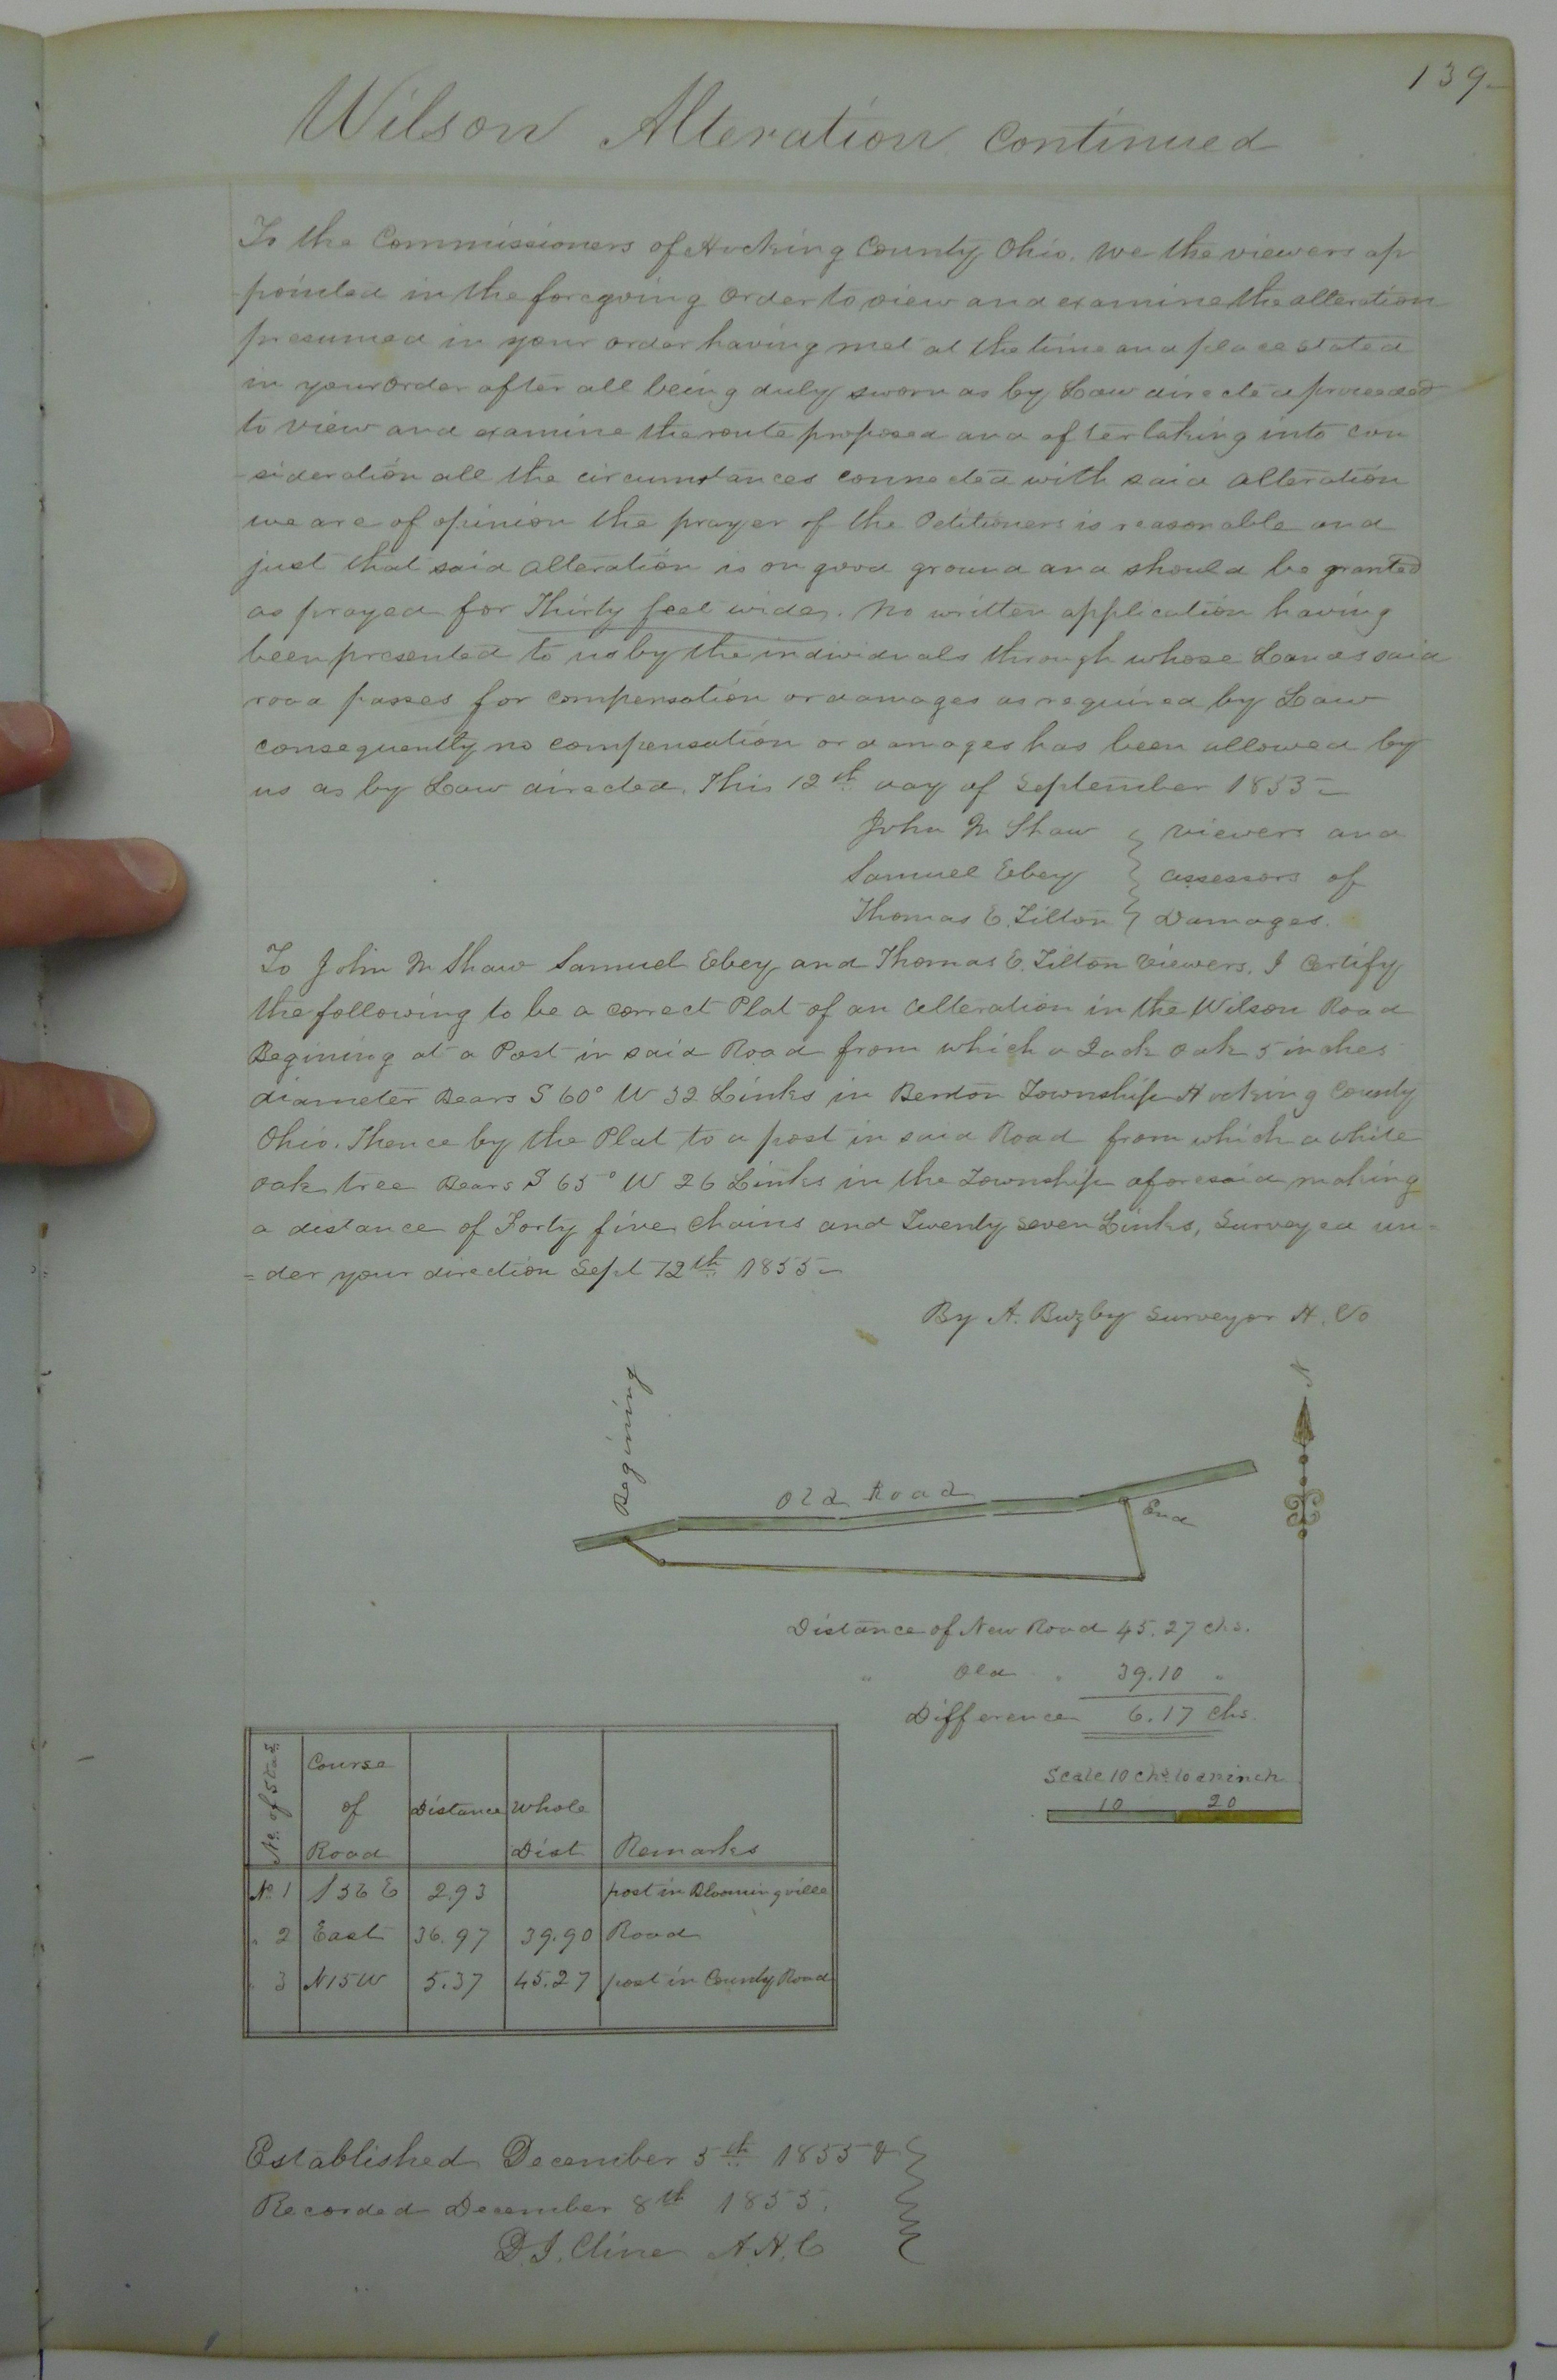 139
Wilson Alteration Continued
To the Commissioners of Hocking County Ohio. We the viewers ap
-pointed in the foregoing order to view and examine the alteration
presumed in your order having met at the time and place stated
in your order after all being duly sworn as by Law directed proceeded
to view and examine the route proposed and after taking into con
-sideration all the circumstances connected with said alteration
we are of opinion the prayer of the Petitioners is reasonable and
just that said alteration is on good ground and should be granted
as prayed for Thirty feet wide. No written application having
been presented to us by the individuals through whose Lands said
road passes for compensation or damages as required by Law
consequently no compensation or damages has been allowed by
us as by Law directed. This 12th day of September 1855
John M Shaw } viewers and
Samuel Ebey } assessors of
Thomas E. Tilton } Damages.
To John M Shaw Samuel Ebey and Thomas E. Tilton Viewers, I Certify
the following to be a correct Plat of an alteration in the Wilson Road
Begining at a Post in said Road from which a Jack oak 5 inches
diameter Bears S 60° W 32 Links in Benton Township Hocking County
Ohio. Thence by the Plat to a post in said Road from which a white
oak tree Bears S 65° W 26 Links in the Township aforesaid making
a distance of Forty five Chains and Twenty seven Links, Surveyed un=
=der your direction Sept 12th 1855
By A. Buzby Surveyor H. Co
N
Begining
Old Road
End
Distance of New Road 45.27 chs.
" Old " 39.10 "
Difference 6.17 Chs.
Scale 10 chs to an inch
10 20
No. of Stas Course of Road Distance Whole Dist Remarks
No 1 S 56 E 2.93 post in Bloomingville
" 2 East 36.97 39.90 Road
" 3 N 15 W 5.37 45.27 post in County Road
Established December 5th 1855 &
Recorded December 8th 1855.
D. I. Cline A. H. C